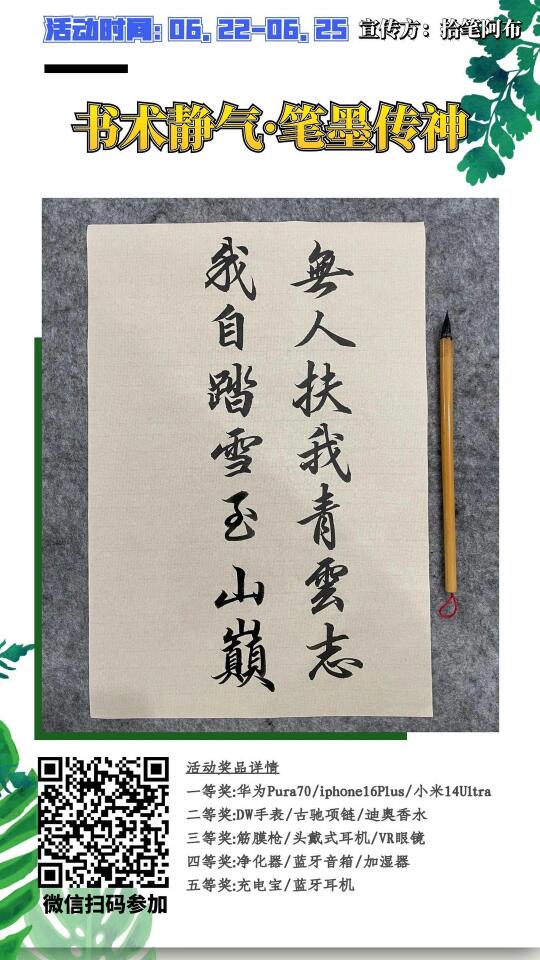 活动时间: 06.22-06.25
宣传方：拾笔阿布
书术静气·笔墨传神
無人扶我青雲志
我自踏雪至山巔
活动奖品详情
一等奖:华为Pura70/iphone16Plus/小米14Ultra
二等奖:DW手表/古驰项链/迪奥香水
三等奖:筋膜枪/头戴式耳机/VR眼镜
四等奖:净化器/蓝牙音箱/加湿器
五等奖:充电宝/蓝牙耳机
微信扫码参加